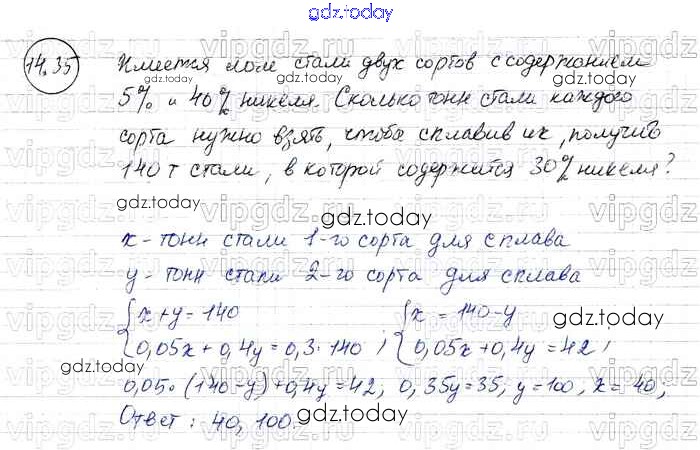 gdz.today
14.35 Имеется лом стали двух сортов с содержанием
5% и 40% никеля. Сколько тонн стали каждого
сорта нужно взять, чтобы сплавив их, получить
140 т стали, в которой содержится 30% никеля?
x - тонн стали 1-го сорта для сплава
y - тонн стали 2-го сорта для сплава
{x+y=140 {x=140-y
{0,05x+0,4y=0,3·140; {0,05x+0,4y=42;
0,05·(140-y)+0,4y=42, 0,35y=35; y=100, x=40;
Ответ: 40, 100.
gdz.today
vipgdz.ru